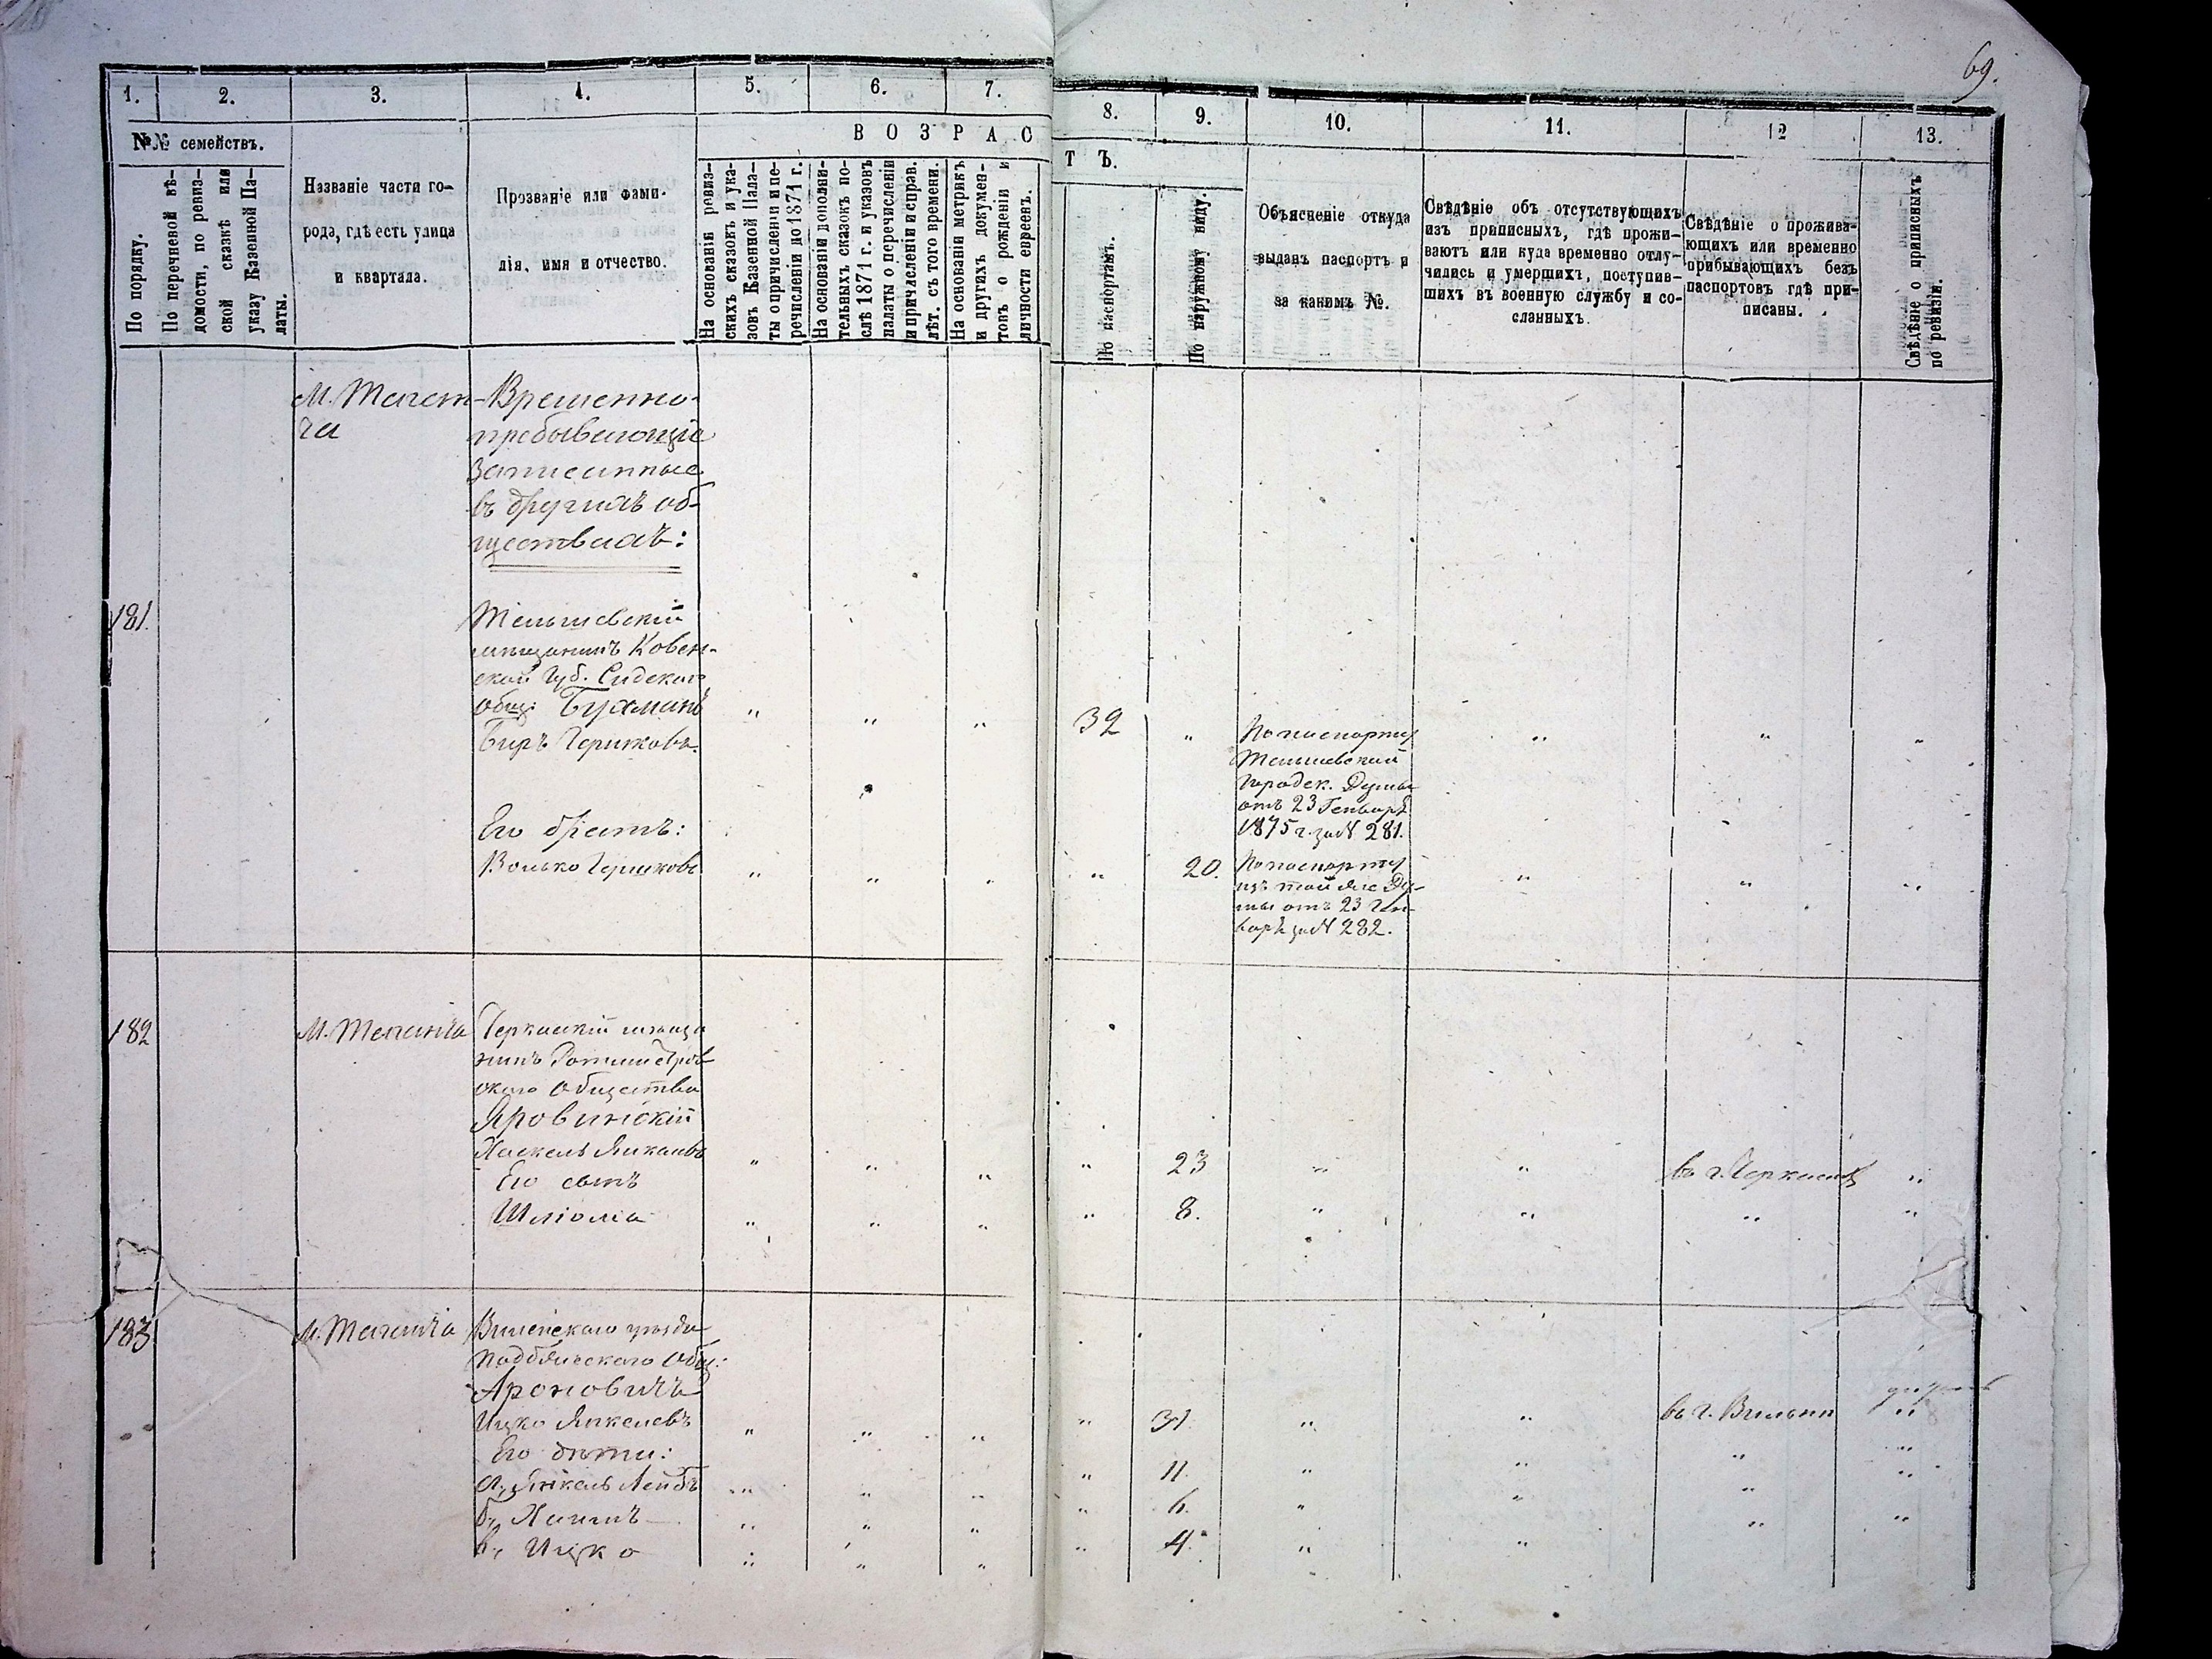 69.
1.
2.
3.
4.
5.
6.
7.
8.
9.
10.
11.
12
13.
№№ семействъ.
ВОЗРАС
Т Ъ.
По порядку.
По перечневой вѣ-
домости, по ревиз-
ской сказкѣ или
указу Казенной Па-
латы.
Названіе части го-
рода, гдѣ есть улица
и квартала.
Прозваніе или фами-
лія, имя и отчество.
На основаніи ревиз-
скихъ сказокъ и ука-
зовъ Казенной Пала-
ты о причисленіи и пе-
речисленіи до 1871 г.
На основаніи дополни-
тельныхъ сказокъ по-
слѣ 1871 г. и указовъ
палаты о перечисленіи
и причисленіи и справ.
лѣт. съ того времени.
На основаніи метрикъ
и другихъ докумен-
товъ о рожденіи и
личности евреевъ.
По паспортамъ.
По наружному виду.
Объясненіе откуда
выданъ паспортъ и
за какимъ №.
Свѣдѣніе объ отсутствующихъ
изъ приписныхъ, гдѣ прожи-
ваютъ или куда временно отлу-
чились и умершихъ, поступив-
шихъ въ военную службу и со-
сланныхъ.
Свѣдѣніе о прожива-
ющихъ или временно
прибывающихъ безъ
паспортовъ гдѣ при-
писаны.
Свѣдѣніе о приписныхъ
по ревизіи.
Временно-
пребывающіе
Записанные
въ другихъ об-
ществахъ:
181.
Тельшевскій
мѣщанинъ Ковен-
ской Губ.
Общ:
" " " 32 " По паспорту " " "
Тельшевской
Городск. Думы
отъ 23 Генваря
1875 г. за № 281.
Его братъ:
Волько " " " " 20. По паспорту " " "
изъ той же Ду-
мы отъ 23 Ген-
варя за № 282.
182
Черкаскій мѣща
нинъ Ротмистров
скаго Общества
Яровинскій
Хаскель " " " " 23 " " въ г. Черкасахъ "
Его сынъ
Шліома " " " " 8. " " " "
183
Виленскаго уѣзда
Общ:
Ароновичъ
Ицко Янкелевъ " " " " 31. " " въ г. Вильнѣ "
Его дѣти:
а, Янкель Лейбъ " " " " 11. " " " "
б, Хаимъ " " " " 6. " " " "
в, Ицко " " " " 4. " " " "